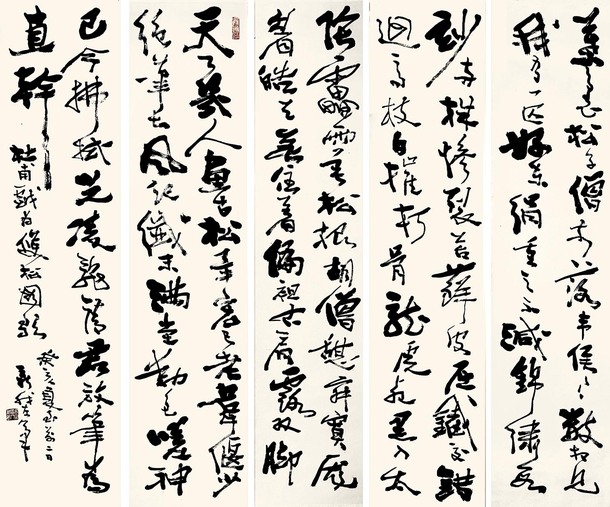 天下幾人畫古松畢宏已老韋偃少
絕筆長風起纖末滿堂動色嗟神
妙兩株慘裂苔蘚皮屈鐵交錯
迴高枝白摧朽骨龍虎死黑入太
陰雷雨垂松根胡僧憩寂寞龐
眉皓首無住著偏袒右肩露雙腳
葉裏松子僧前落韋侯〻〻數相見
我有一匹好東絹重之不減錦繡段
已令拂拭光凌亂請君放筆為
直幹 杜甫戲為雙松圖歌
癸亥夏至前二日